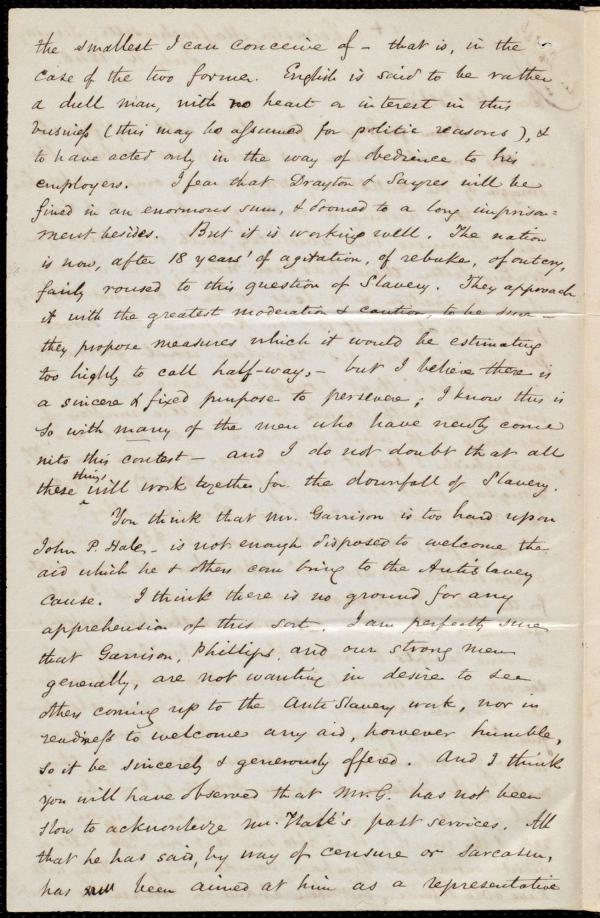 the smallest I can conceive of – that is, in the
case of the two former. English is said to be rather
a dull man, with no heart or interest in this
business (this may be assumed for politic reasons), &
to have acted only in the way of obedience to his
employers. I fear that Drayton & Sayres will be
fined in an enormous sum, & doomed to a long imprison=
ment besides. But it is working well. The nation
is now, after 18 years' of agitation, of rebuke, of outcry,
fairly roused to this question of Slavery. They approach
it with the greatest moderation & caution, to be sure –
they propose measures which it would be estimating
too highly to call half-way, – but I believe there is
a sincere & fixed purpose to persevere; I know this is
so with many of the men who have newly come
into this contest – and I do not doubt that all
these things will work together for the downfall of Slavery.
You think that Mr. Garrison is too hard upon
John P. Hale, – is not enough disposed to welcome the
aid which he & others can bring to the Antislavery
cause. I think there is no ground for any
apprehension of this sort. I am perfectly sure
that Garrison, Phillips, and our strong men
generally, are not wanting in desire to see
others coming up to the Anti Slavery work, nor in
readiness to welcome any aid, however humble,
so it be sincerely & generously offered. And I think
you will have observed that Mr. G. has not been
slow to acknowledge Mr. Hale's past services. All
that he has said, by way of censure or sarcasm,
has been aimed at him as a representative